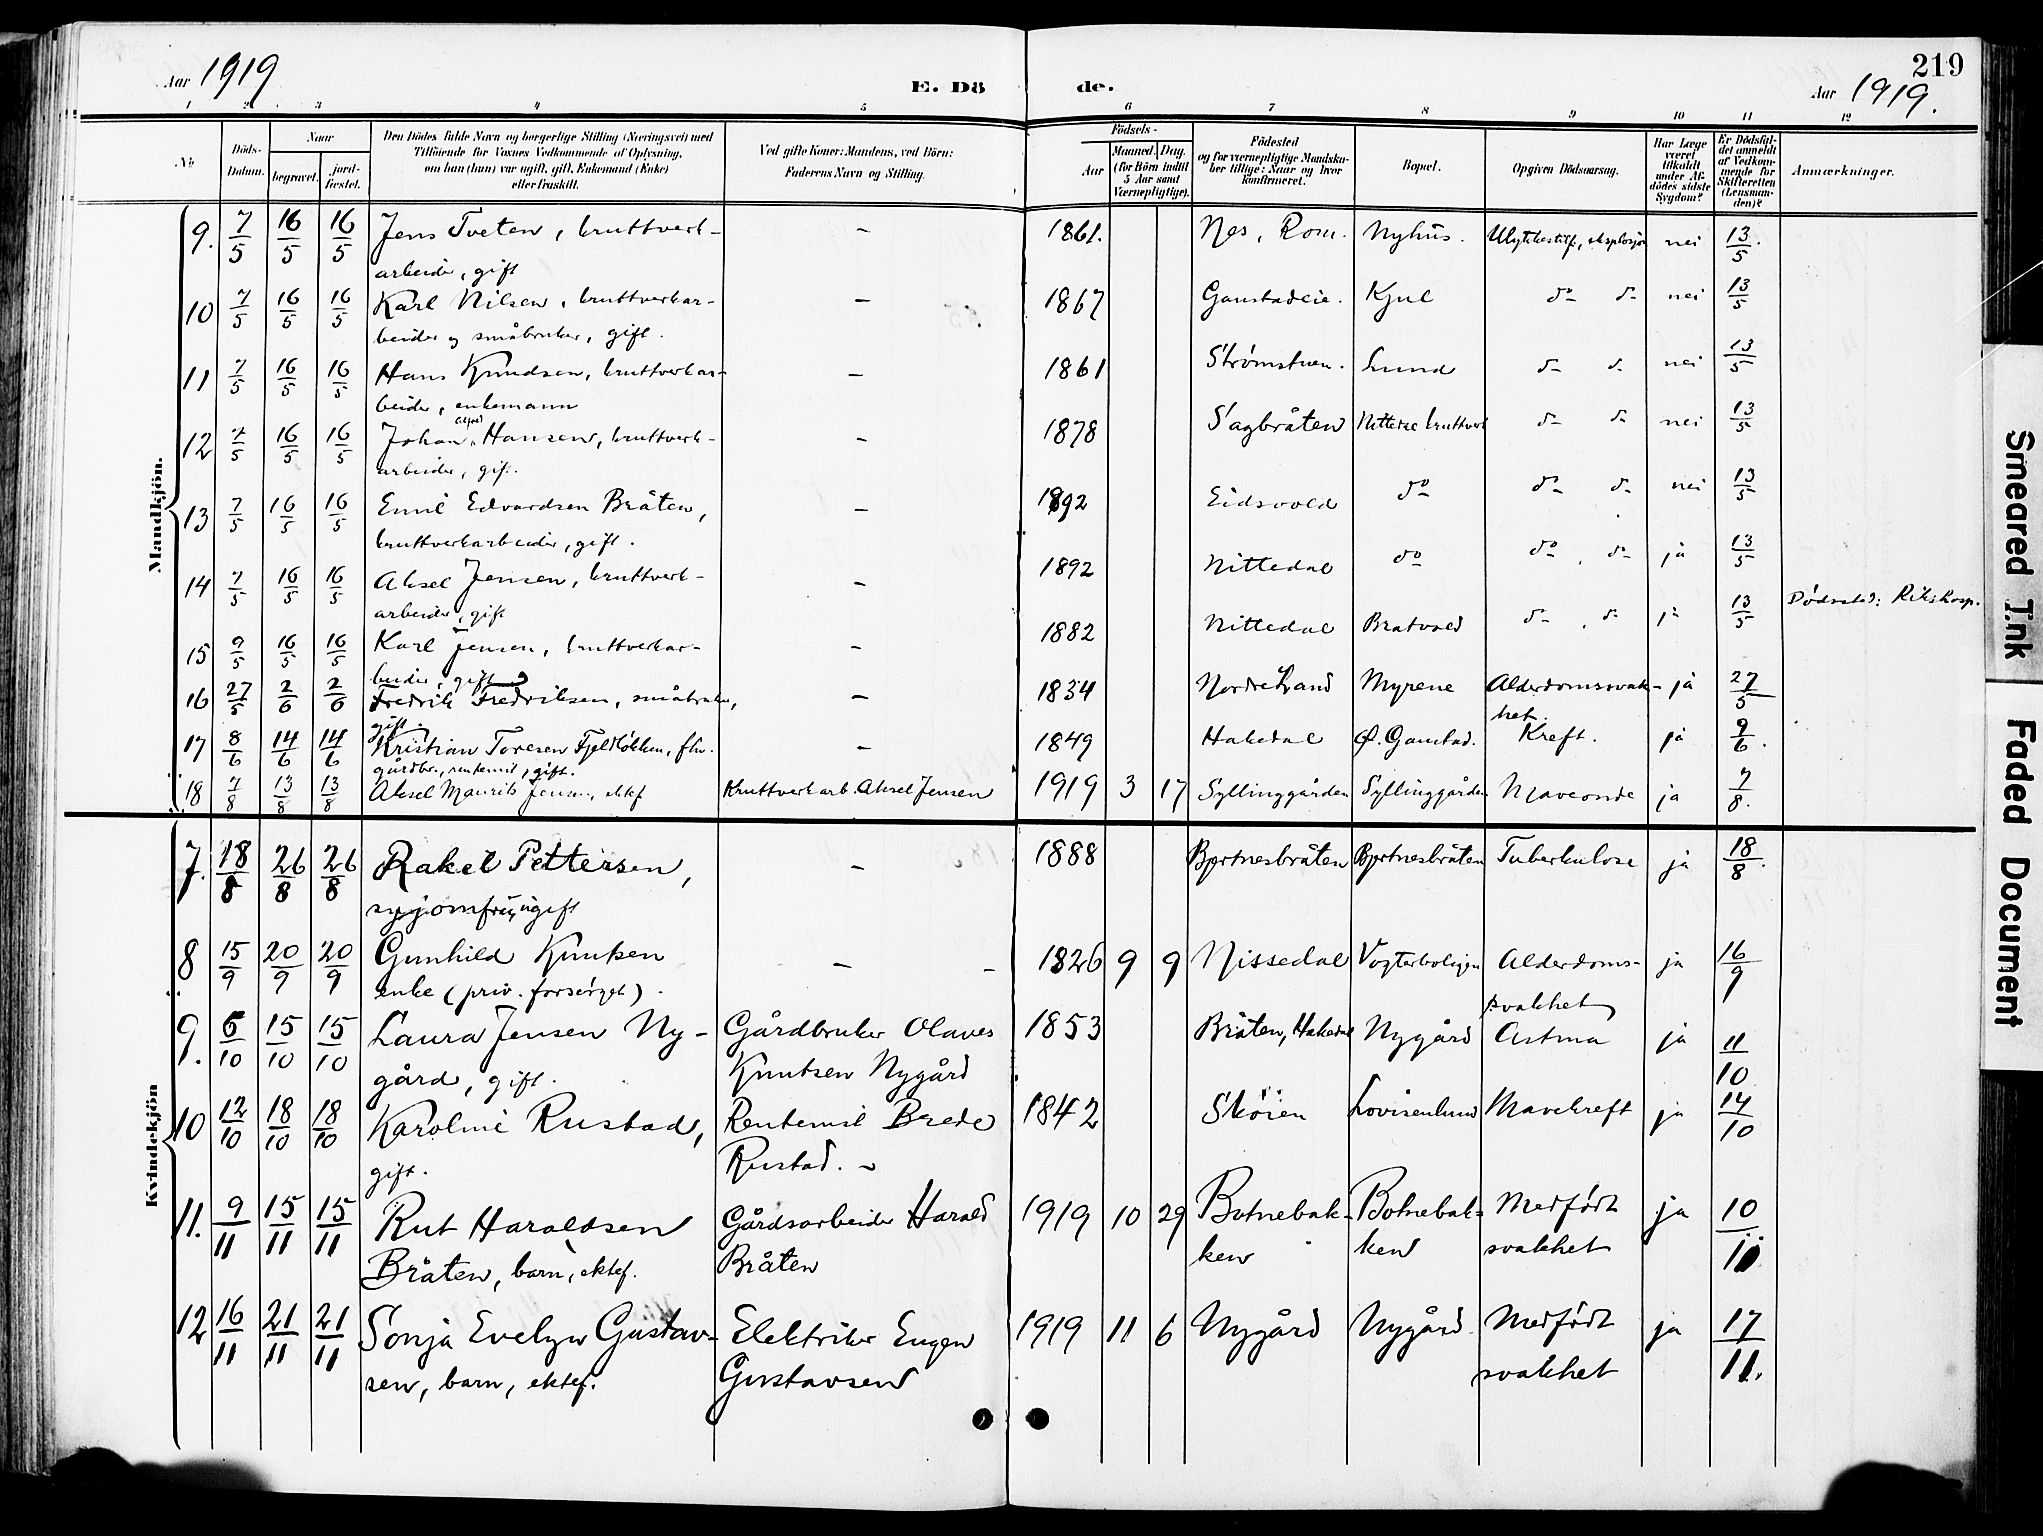 Aar 1919
E. Dö
de.
219
Aar 1919.
1 2 3 4 5 6 7 8 9 10 11 12
No
Döds-Datum.
Naar
begravet.
jord-fæstet.
Den Dödes fulde Navn og borgerlige Stilling (Næringsvei) med
Tilföiende for Voxnes Vedkommende af Oplysning,
om han (hun) var ugift, gift, Enkemand (Enke)
eller fraskilt.
Ved gifte Koner: Mandens, ved Börn:
Faderens Navn og Stilling.
Födsels-
Aar
Maaned. Dag.
(for Börn indtil
5 Aar samt
Værnepligtige).
Födested
og for værnepligtige Mandska-
ber tillige: Naar og hvor
konfirmeret.
Bopæl.
Opgiven Dödsaarsag.
Har Læge
været
tilkaldt
under Af-
dödes sidste
Sygdom?
Er Dödsfal-
det anmeldt
af Vedkom-
mende for
Skifteretten
(Lensman-
den)?
Anmærkninger.
Mandkjön.
9. 7/5 16/5 16/5 Jens Tveten, kruttverk- – 1861. Nes, Rom. Nyhus. Ulykkestilf., eksplosjon nei 13/5.
arbeider, gift
10 7/5 16/5 16/5 Karl Nilsen, kruttverkar- – 1867 Gaustadeie. Kjul do do nei 13/5
beider og småbruker, gift.
11 7/5 16/5 16/5 Hans Knudsen, kruttverkar- – 1861 Strømstuen. Lund do do nei 13/5
beider, enkemann
12 7/5 16/5 16/5 Johan Alfred Hansen, kruttverk- – 1878 Sagbråten Nittedal kruttverk do do nei 13/5
arbeider, gift.
13 7/5 16/5 16/5 Emil Edvardsen Bråten, – 1892 Eidsvold do do do nei 13/5
kruttverkarbeider, gift.
14 7/5 16/5 16/5 Aksel Jensen, kruttverk- – 1892 Nittedal do do do ja 13/5
arbeider, gift
15 9/5 16/5 16/5 Karl Jensen, kruttverkar- – 1882 Nittedal Bratvold do do ja 13/5 Dødssted: Rikshosp.
beider, gift
16 27/5 2/6 2/6 Fredrik Fredriksen, småbruker, – 1834 Nordre Strand Myrene Alderdomssvak- ja 27/5
gift. het.
17 8/6 14/6 14/6 Kristian Toresen Fjeldløkken, fhv. – 1849 Hakedal Ø. Gaustad. Kreft. ja 9/6.
gårdbr., rentenist, gift.
18 7/8 13/8 13/8 Aksel Maurits Jensen, ektef Kruttverkarb. Aksel Jensen 1919 3 17 Syllinggården Syllinggården Maveonde ja 7/8.
Kvindekjön
7. 18/8 26/8 26/8 Rakel Pettersen, – 1888 Bjertnesbråten Bjertnesbråten Tuberkulose ja 18/8.
syjomfru, ugift
8 15/9 20/9 20/9 Gunhild Knutsen – – 1826 9 9 Nissedal Vogterboligen Alderdoms- ja 16/9
enke (priv. forsørget). svakhet
9. 6/10 15/10 15/10 Laura Jensen Ny- Gårdbruker Olaves 1853 Bråten, Hakedal Nygård Astma ja 11/10
gård, gift. Knutsen Nygård
10 12/10 18/10 18/10 Karoline Rustad, Rentenist Brede 1842 Skøien Lovisenlund Mavekreft ja 14/10
gift. Rustad. –
11. 9/11 15/11 15/11 Rut Haraldsen Gårdsarbeider Harald 1919 10 29 Botnebak- Botnebak- Medfødt ja 10/11
Bråten, barn, ektef. Bråten ken ken svakhet
12 16/11 21/11 21/11 Sonja Evelyn Gustav- Elektriker Eugen 1919 11 6 Nygård Nygård Medfødt ja 17/11.
sen, barn, ektef. Gustavsen svakhet
Smeared Ink
Faded Document